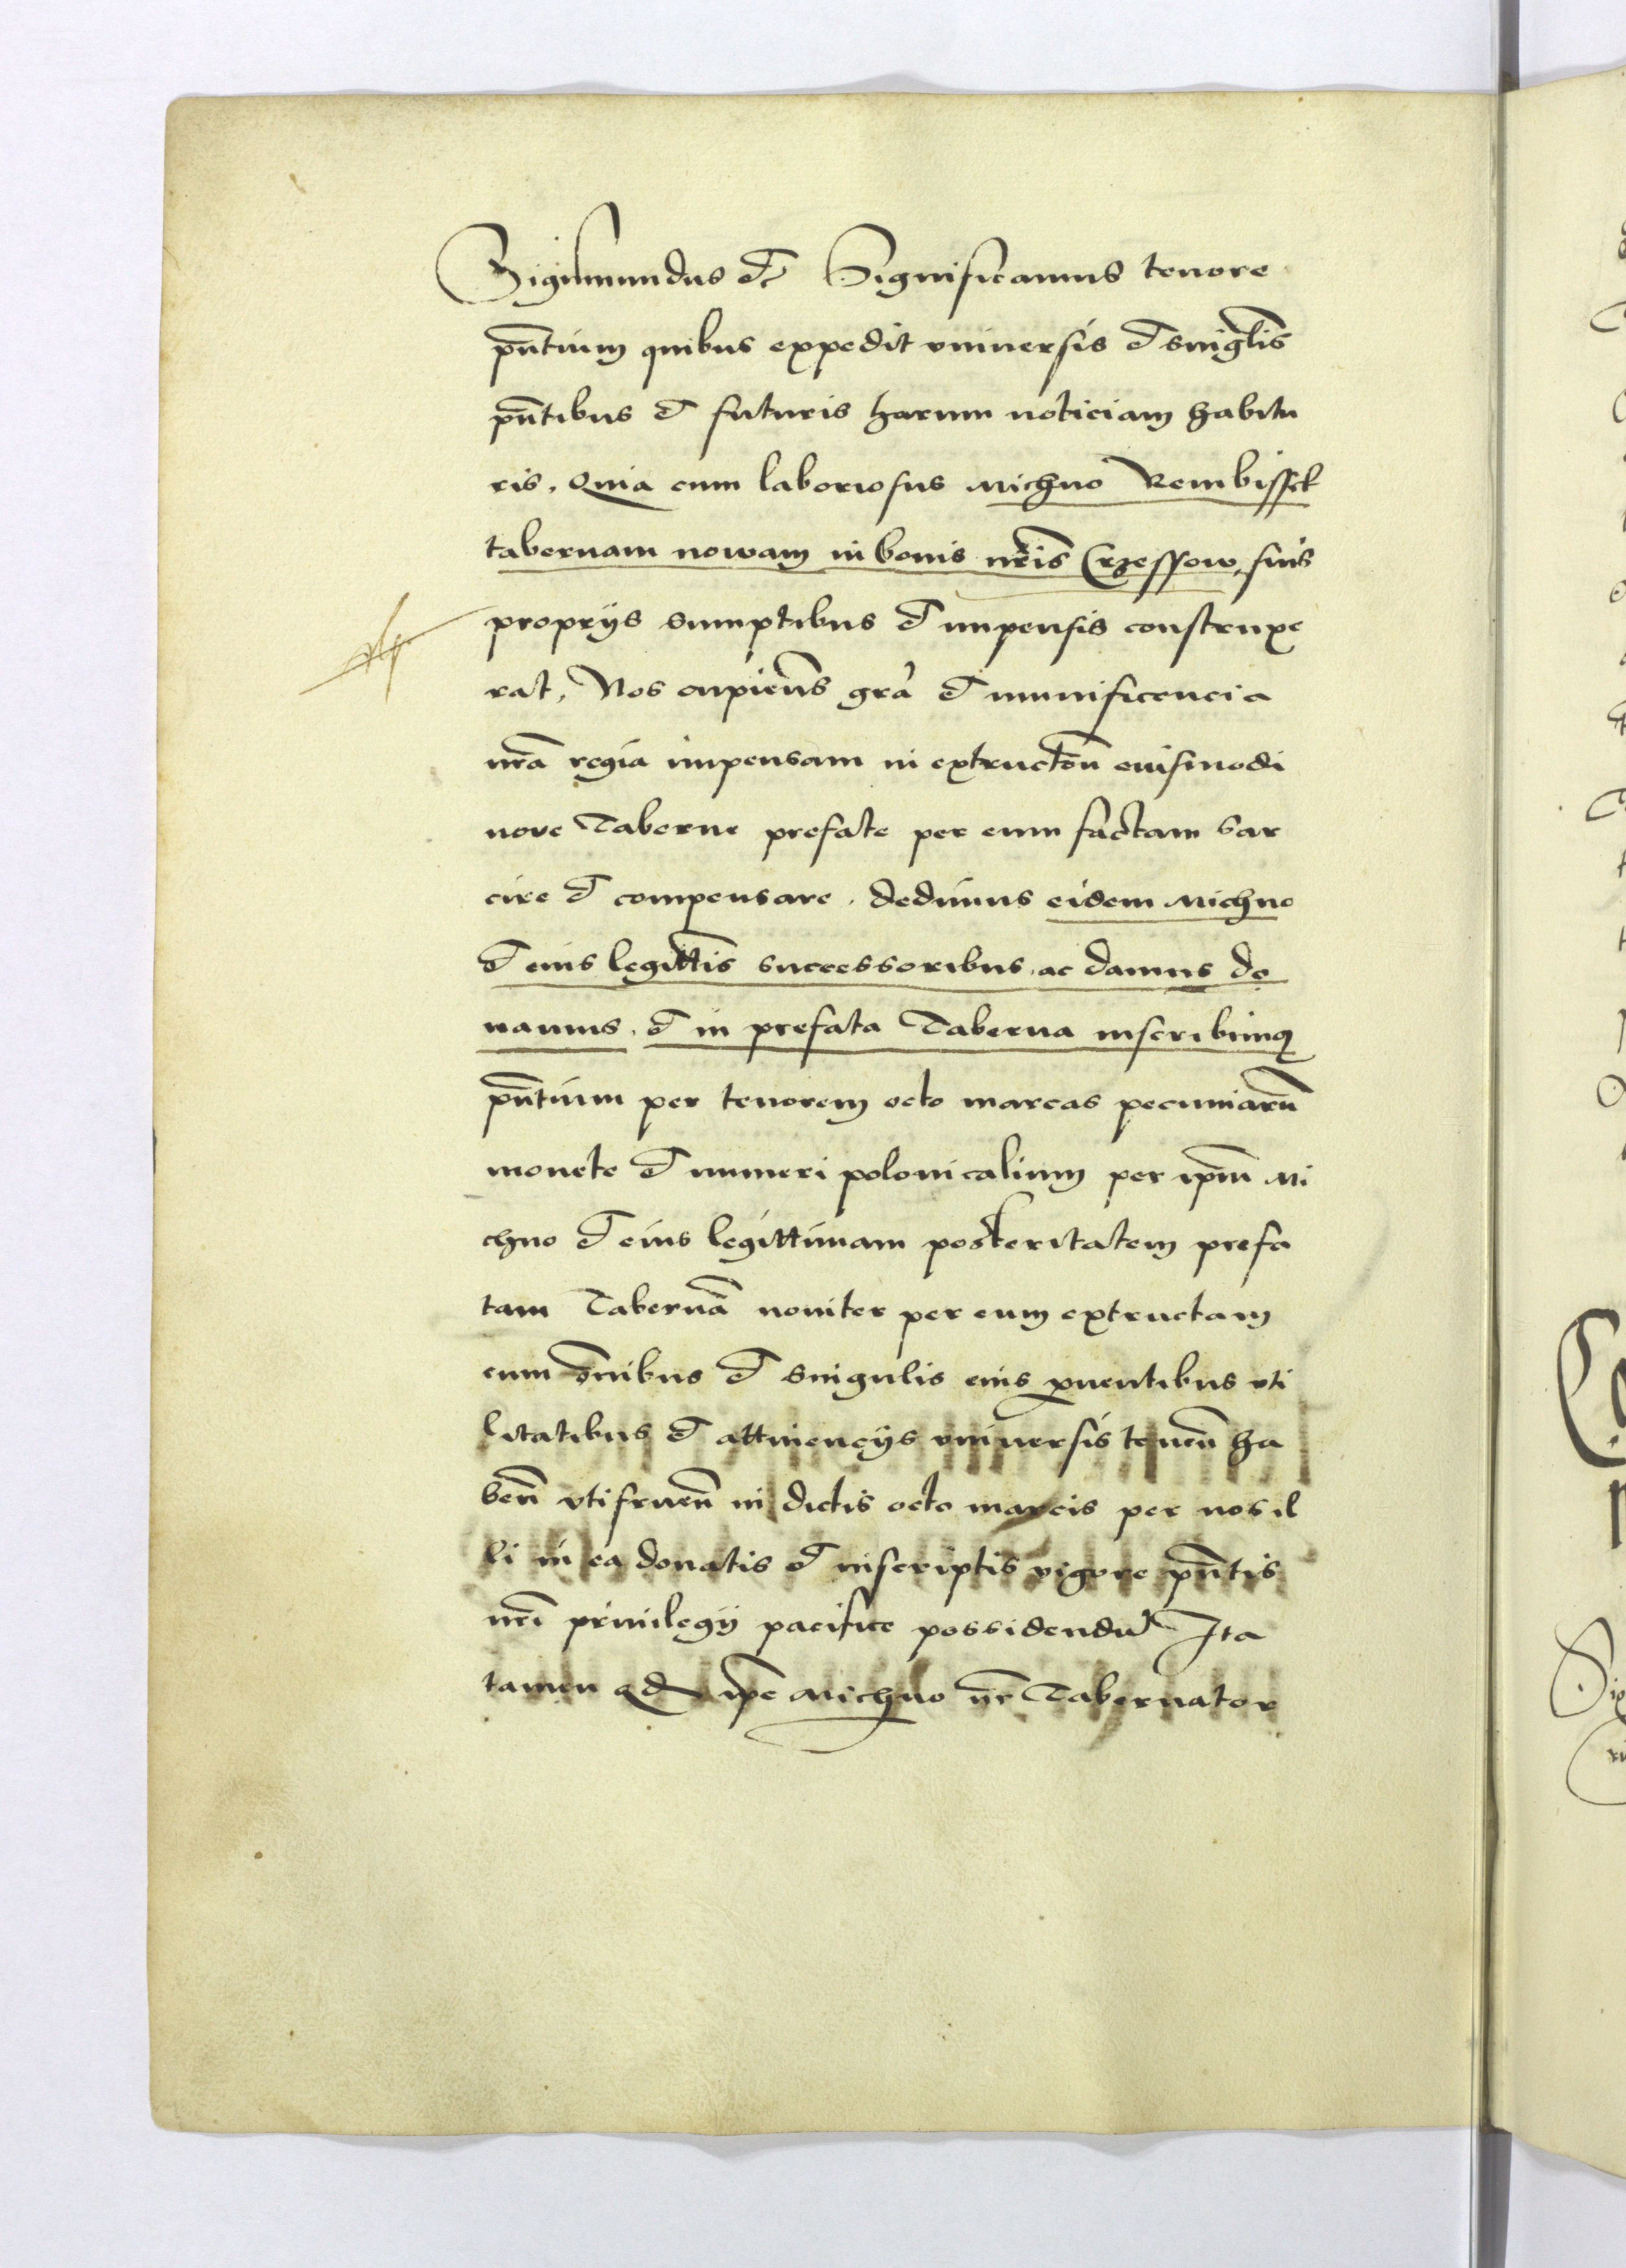 Sigismundus etc Significamus tenore
pn̄tium quibus expedit vniuersis et singl̄is
pn̄tibus et futuris harum noticiam habitu
ris, Quia cum laboriosus Michno Rembissek
tabernam nowam in bonis nr̄is Crzessow, suis
proprijs sumptibus et impensis construxe
rat, Nos cupien̄s gr̄a et munificencia
nr̄a regia impensam in extructōn̄ euismodi
nove Taberne prefate per eum factam sar
cire et compensare, dedimus eidem Michno
et eius legittīs successoribus, ac damus do
namus, et in prefata Taberna inscribimq
pn̄tium per tenorem octo marcas pecuniarū
monete et numeri polonicalium per ip̄m Mi
chno et eius legittimam posteritatem prefa
tam Tabernā noviter per eum extructam
cum om̄nibus et singulis eius ꝓuentibus vti
litatibus et attinencijs vniuersis tenen̄ ha
ben̄ vtifruen̄ in dictis octo marcis per nos il
li in ea donatis et inscriptis vigore pn̄tis
nr̄i priuilegij pacifice possidendā Ita
tamen qd ip̄e Michno nr̄ Tabernator